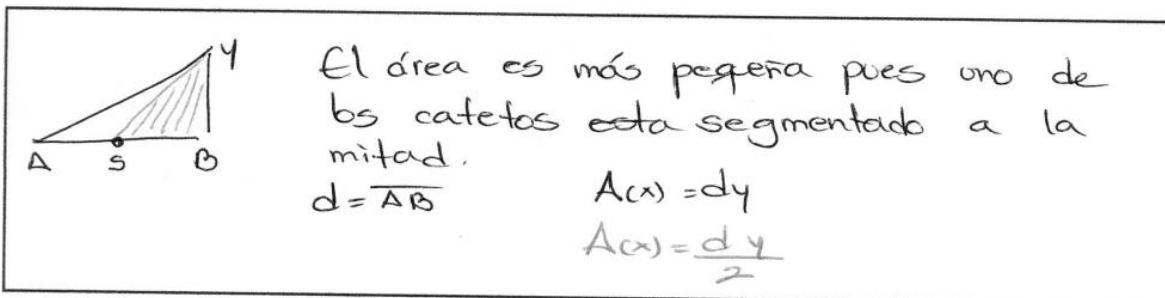 y
El área es más peqeña pues uno de
los catetos esta segmentado a la
mitad.
A S B
d = AB
A(x) = dy
A(x) = dy/2